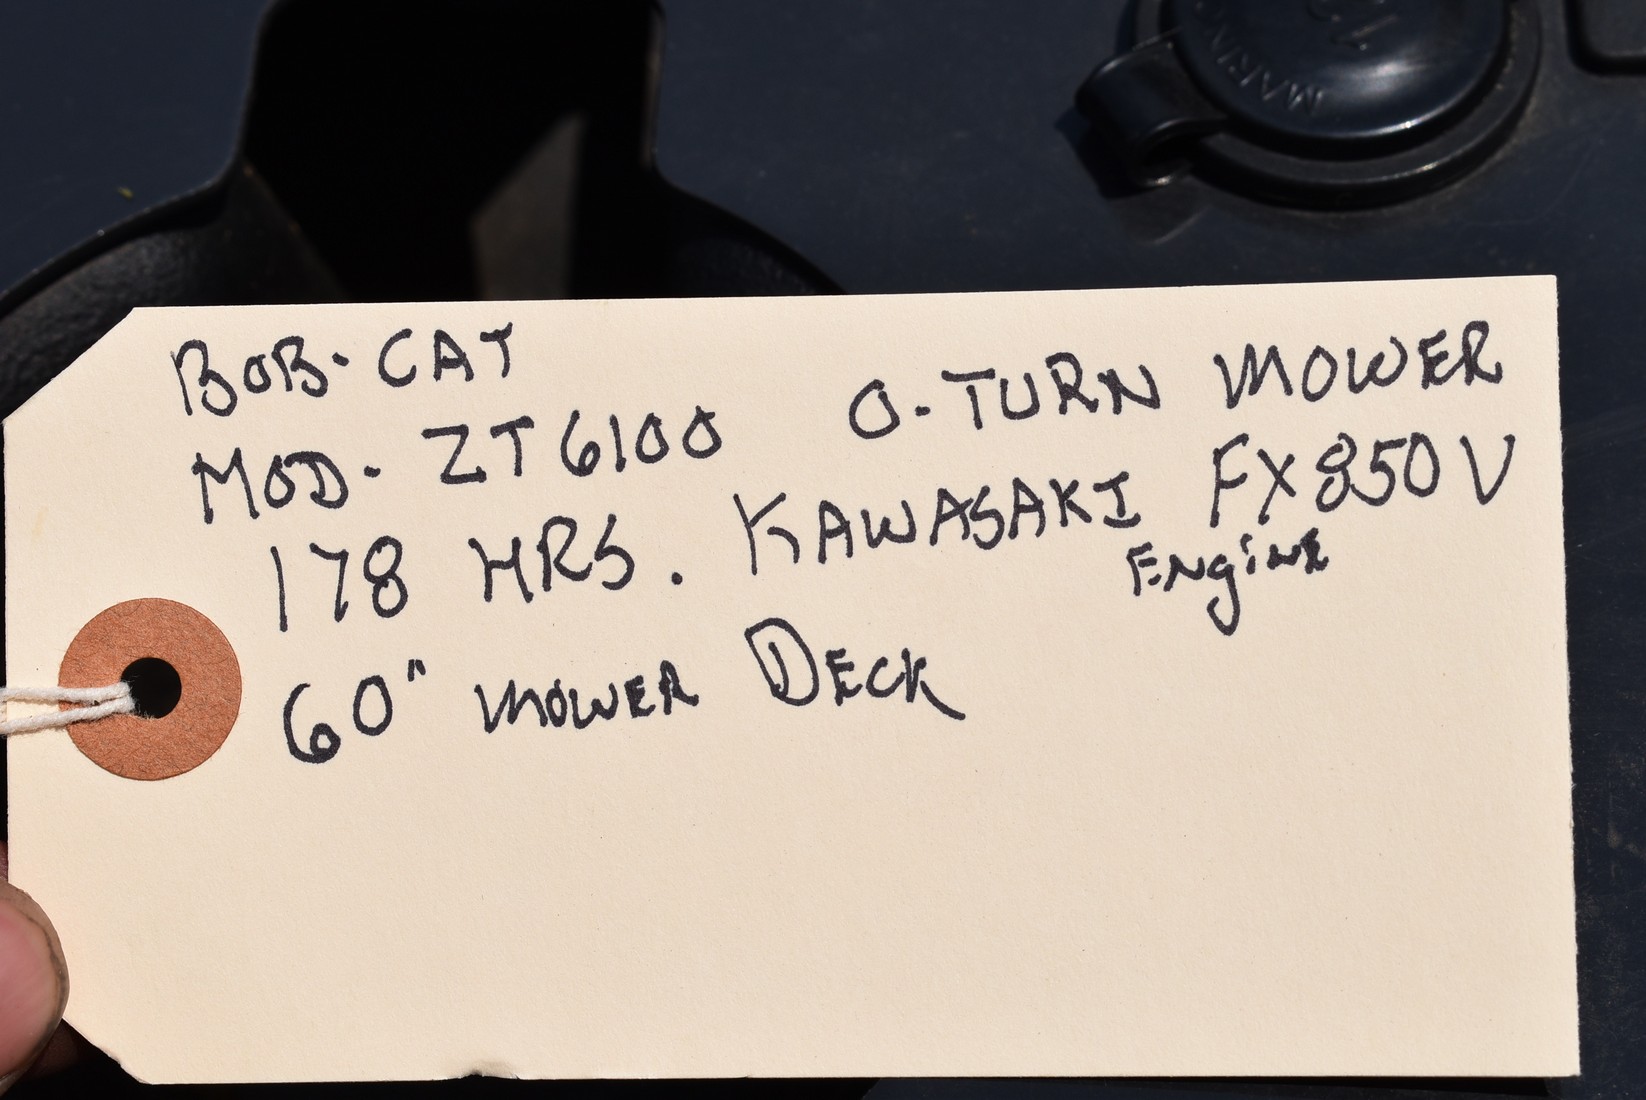 MARINCO
BOB-CAT
MOD- ZT6100 0-TURN MOWER
178 HRS. KAWASAKI FX850V
ENgiNE
60" MOWER DECK